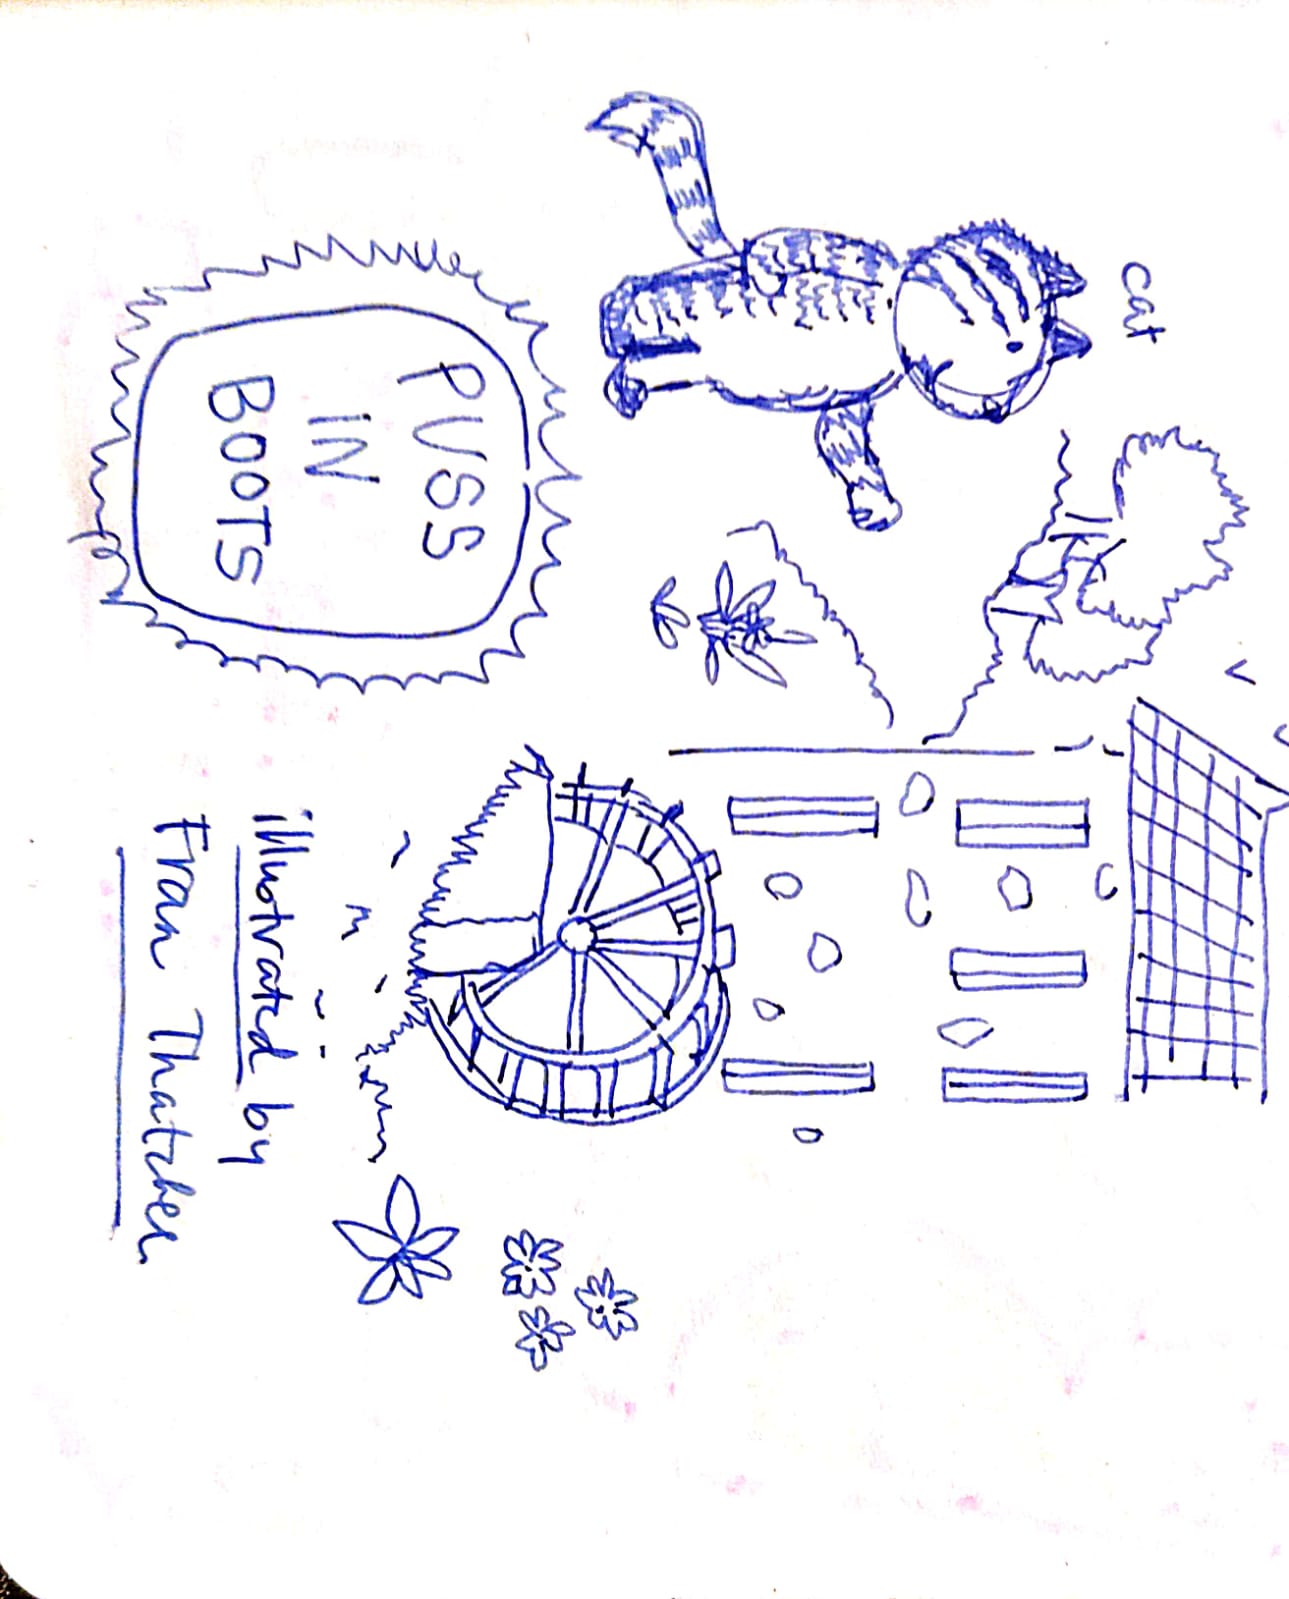 cat
PUSS
IN
BOOTS
illustrated by
Fran Thatcher